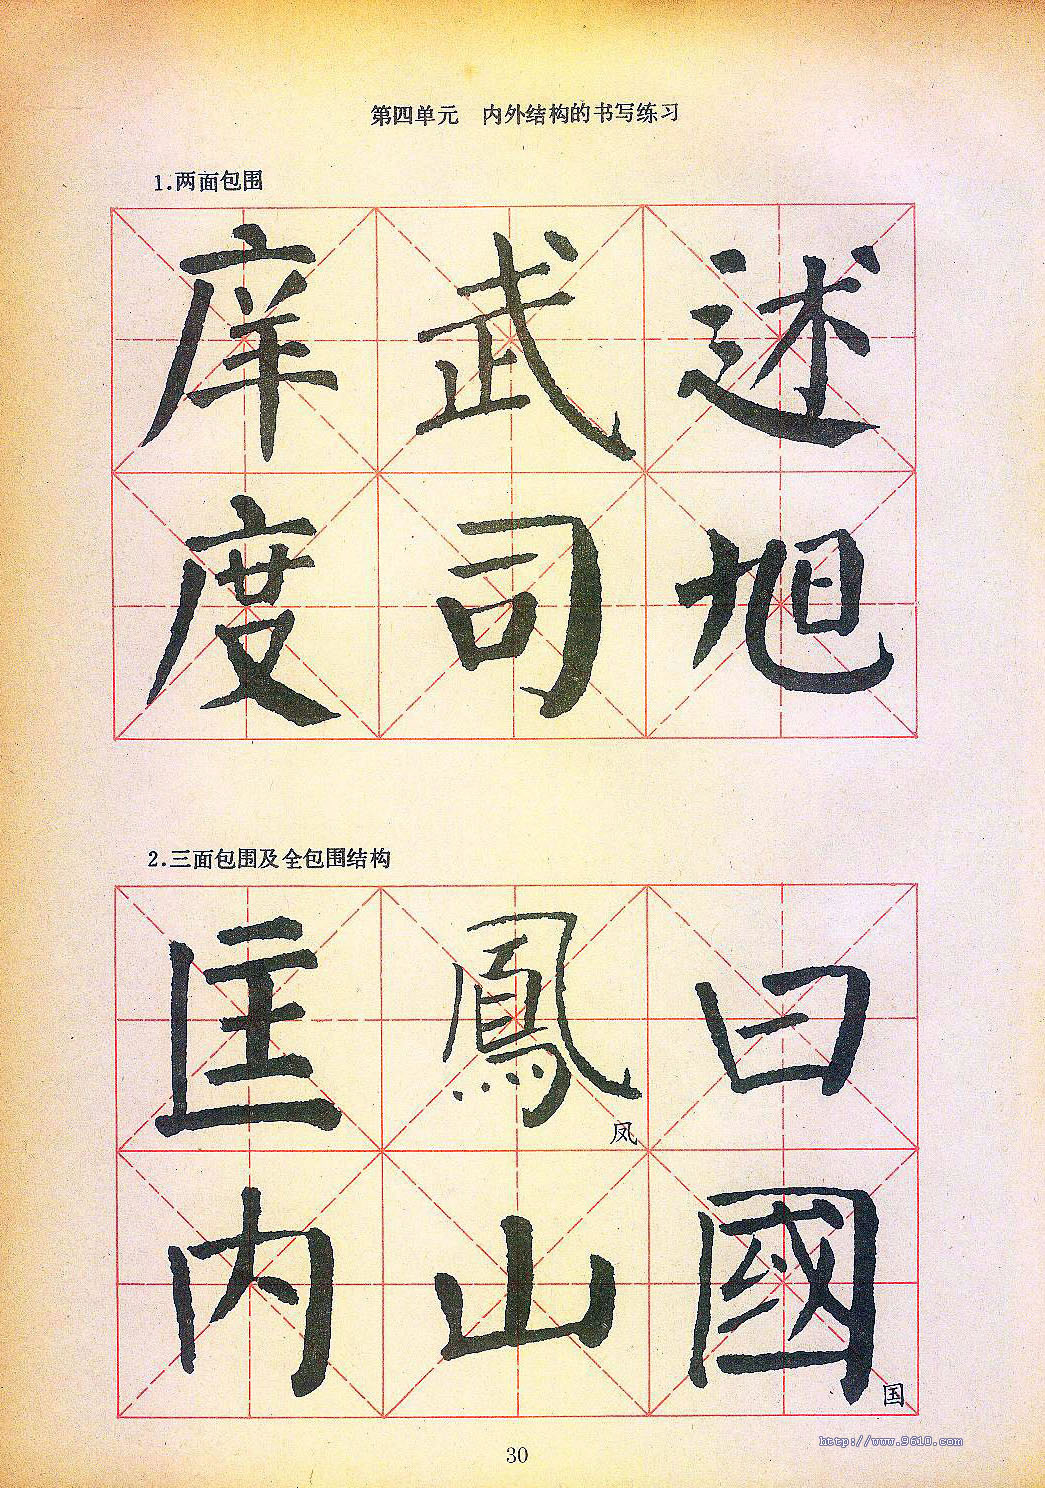 第四单元 内外结构的书写练习
1.两面包围
庠武述
度司旭
2.三面包围及全包围结构
匡鳳曰
凤
内山國
国
30
http://www.9610.com